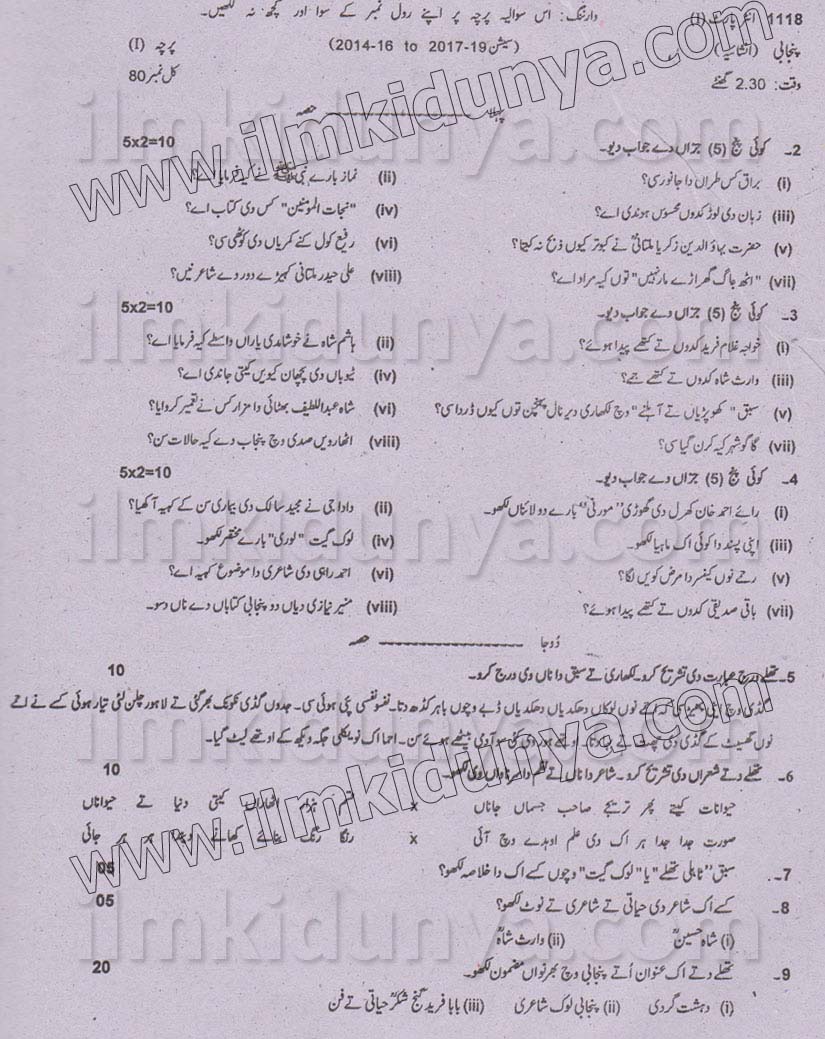 1118 انٹر پارٹ (I) وارننگ: اس سوالیہ پرچہ پر اپنے رول نمبر کے سوا اور کچھ نہ لکھیں۔
پنجابی (انشائیہ) (سیشن 2014-16 to 2017-19) پرچہ (I)
وقت: 2.30 گھنٹے کل نمبر 80
پہلا حصہ
2۔ کوئی پنج (5) جزاں دے جواب دیو۔ 5x2=10
(i) براق کس طراں دا جانور سی؟ (ii) نماز بارے نبیﷺ نے کیہ فرمایا اے؟
(iii) زبان دی لوڑ کدوں محسوس ہوندی اے؟ (iv) "نجات المومنین" کس دی کتاب اے؟
(v) حضرت بہاؤ الدین زکریا ملتانیؒ نے کبوتر کیوں ذبح نہ کیتا؟ (vi) رفیع کول کنے کمریاں دی کوٹھی سی؟
(vii) "اٹھ جاگ گھراڑے مار نہیں" توں کیہ مراد اے؟ (viii) علی حیدر ملتانی کہیڑے دور دے شاعر نیں؟
3۔ کوئی پنج (5) جزاں دے جواب دیو۔ 5x2=10
(i) خواجہ غلام فرید کدوں تے کتھے پیدا ہوئے؟ (ii) ہاشم شاہ نے خوشامدی یاراں واسطے کیہ فرمایا اے؟
(iii) وارث شاہ کدوں تے کتھے جمے؟ (iv) ٹیوباں دی پچھان کیویں کیتی جاندی اے؟
(v) سبق "کھوپڑیاں تے آہلنے" وچ لکھاری دیر نال پہنچن توں کیوں ڈردا سی؟ (vi) شاہ عبداللطیف بھٹائی دا مزار کس نے تعمیر کروایا؟
(vii) گاگو شہر کیہ کرن گیا سی؟ (viii) اٹھارویں صدی وچ پنجاب دے کیہ حالات سن؟
4۔ کوئی پنج (5) جزاں دے جواب دیو۔ 5x2=10
(i) رائے احمد خان کھرل دی گھوڑی "مورنی" بارے دو لائناں لکھو۔ (ii) دادا جی نے مجید سالک دی بیماری سن کے کیہہ آکھیا؟
(iii) اپنی پسند دا کوئی اک ماہیا لکھو۔ (iv) لوک گیت "لوری" بارے مختصر لکھو۔
(v) رحمے نوں کینسر دا مرض کویں لگا؟ (vi) احمد راہی دی شاعری دا موضوع کیہہ اے؟
(vii) باقی صدیقی کدوں تے کتھے پیدا ہوئے؟ (viii) منیر نیازی دیاں دو پنجابی کتاباں دے ناں دسو۔
دُوجا حصہ
5۔ تھلے درج عبارت دی تشریح کرو۔ لکھاری تے سبق دا ناں وی درج کرو۔ 10
گڈی وچ اینی بھیڑ سی کہ اتے نوں لوکاں دھکدیاں دھکدیاں ڈبے وچوں باہر کڈھ دتا۔ نفسو نفسی پئی ہوئی سی۔ جدوں گڈی نکونک بھر گئی تے لاہور چلن لئی تیار ہوئی کسے نے اتے
نوں گھسیٹ کے گڈی دی چھت تے اوتھے ہور وی کئی سو آدمی بیٹھے ہوئے سن۔ اک نویکلی جگہ ویکھ کے اوتھے لیٹ گیا۔
6۔ تھلے دتے شعراں دی تشریح کرو۔ شاعر دا ناں تے نظم دا سرناواں وی لکھو۔ 10
حیوانات کیتے پھر ترتیجے صاحب جسماں جاناں x قسم ہزار اٹھاراں کیتی دنیا تے حیواناں
صورت جدا جدا ہر اک دی علم اوہدے وچ آئی x رنگا رنگ بنائے کھانے ہر ہر جائی
7۔ سبق "ٹاہلی تھلے" یا "لوک گیت" وچوں کسے اک دا خلاصہ لکھو؟ 05
8۔ کسے اک شاعر دی حیاتی تے شاعری تے نوٹ لکھو؟ 05
(i) شاہ حسینؒ (ii) وارث شاہؒ
9۔ تھلے دتے اک عنوان اُتے پنجابی وچ بھرنواں مضمون لکھو۔ 20
(i) دہشت گردی (ii) پنجابی لوک شاعری (iii) بابا فرید گنج شکرؒ حیاتی تے فن
www.ilmkidunya.com
www.ilmkidunya.com
ilmkidunya.com
ilmkidunya.com
ilmkidunya.com
ilmkidunya.com
ilmkidunya.com